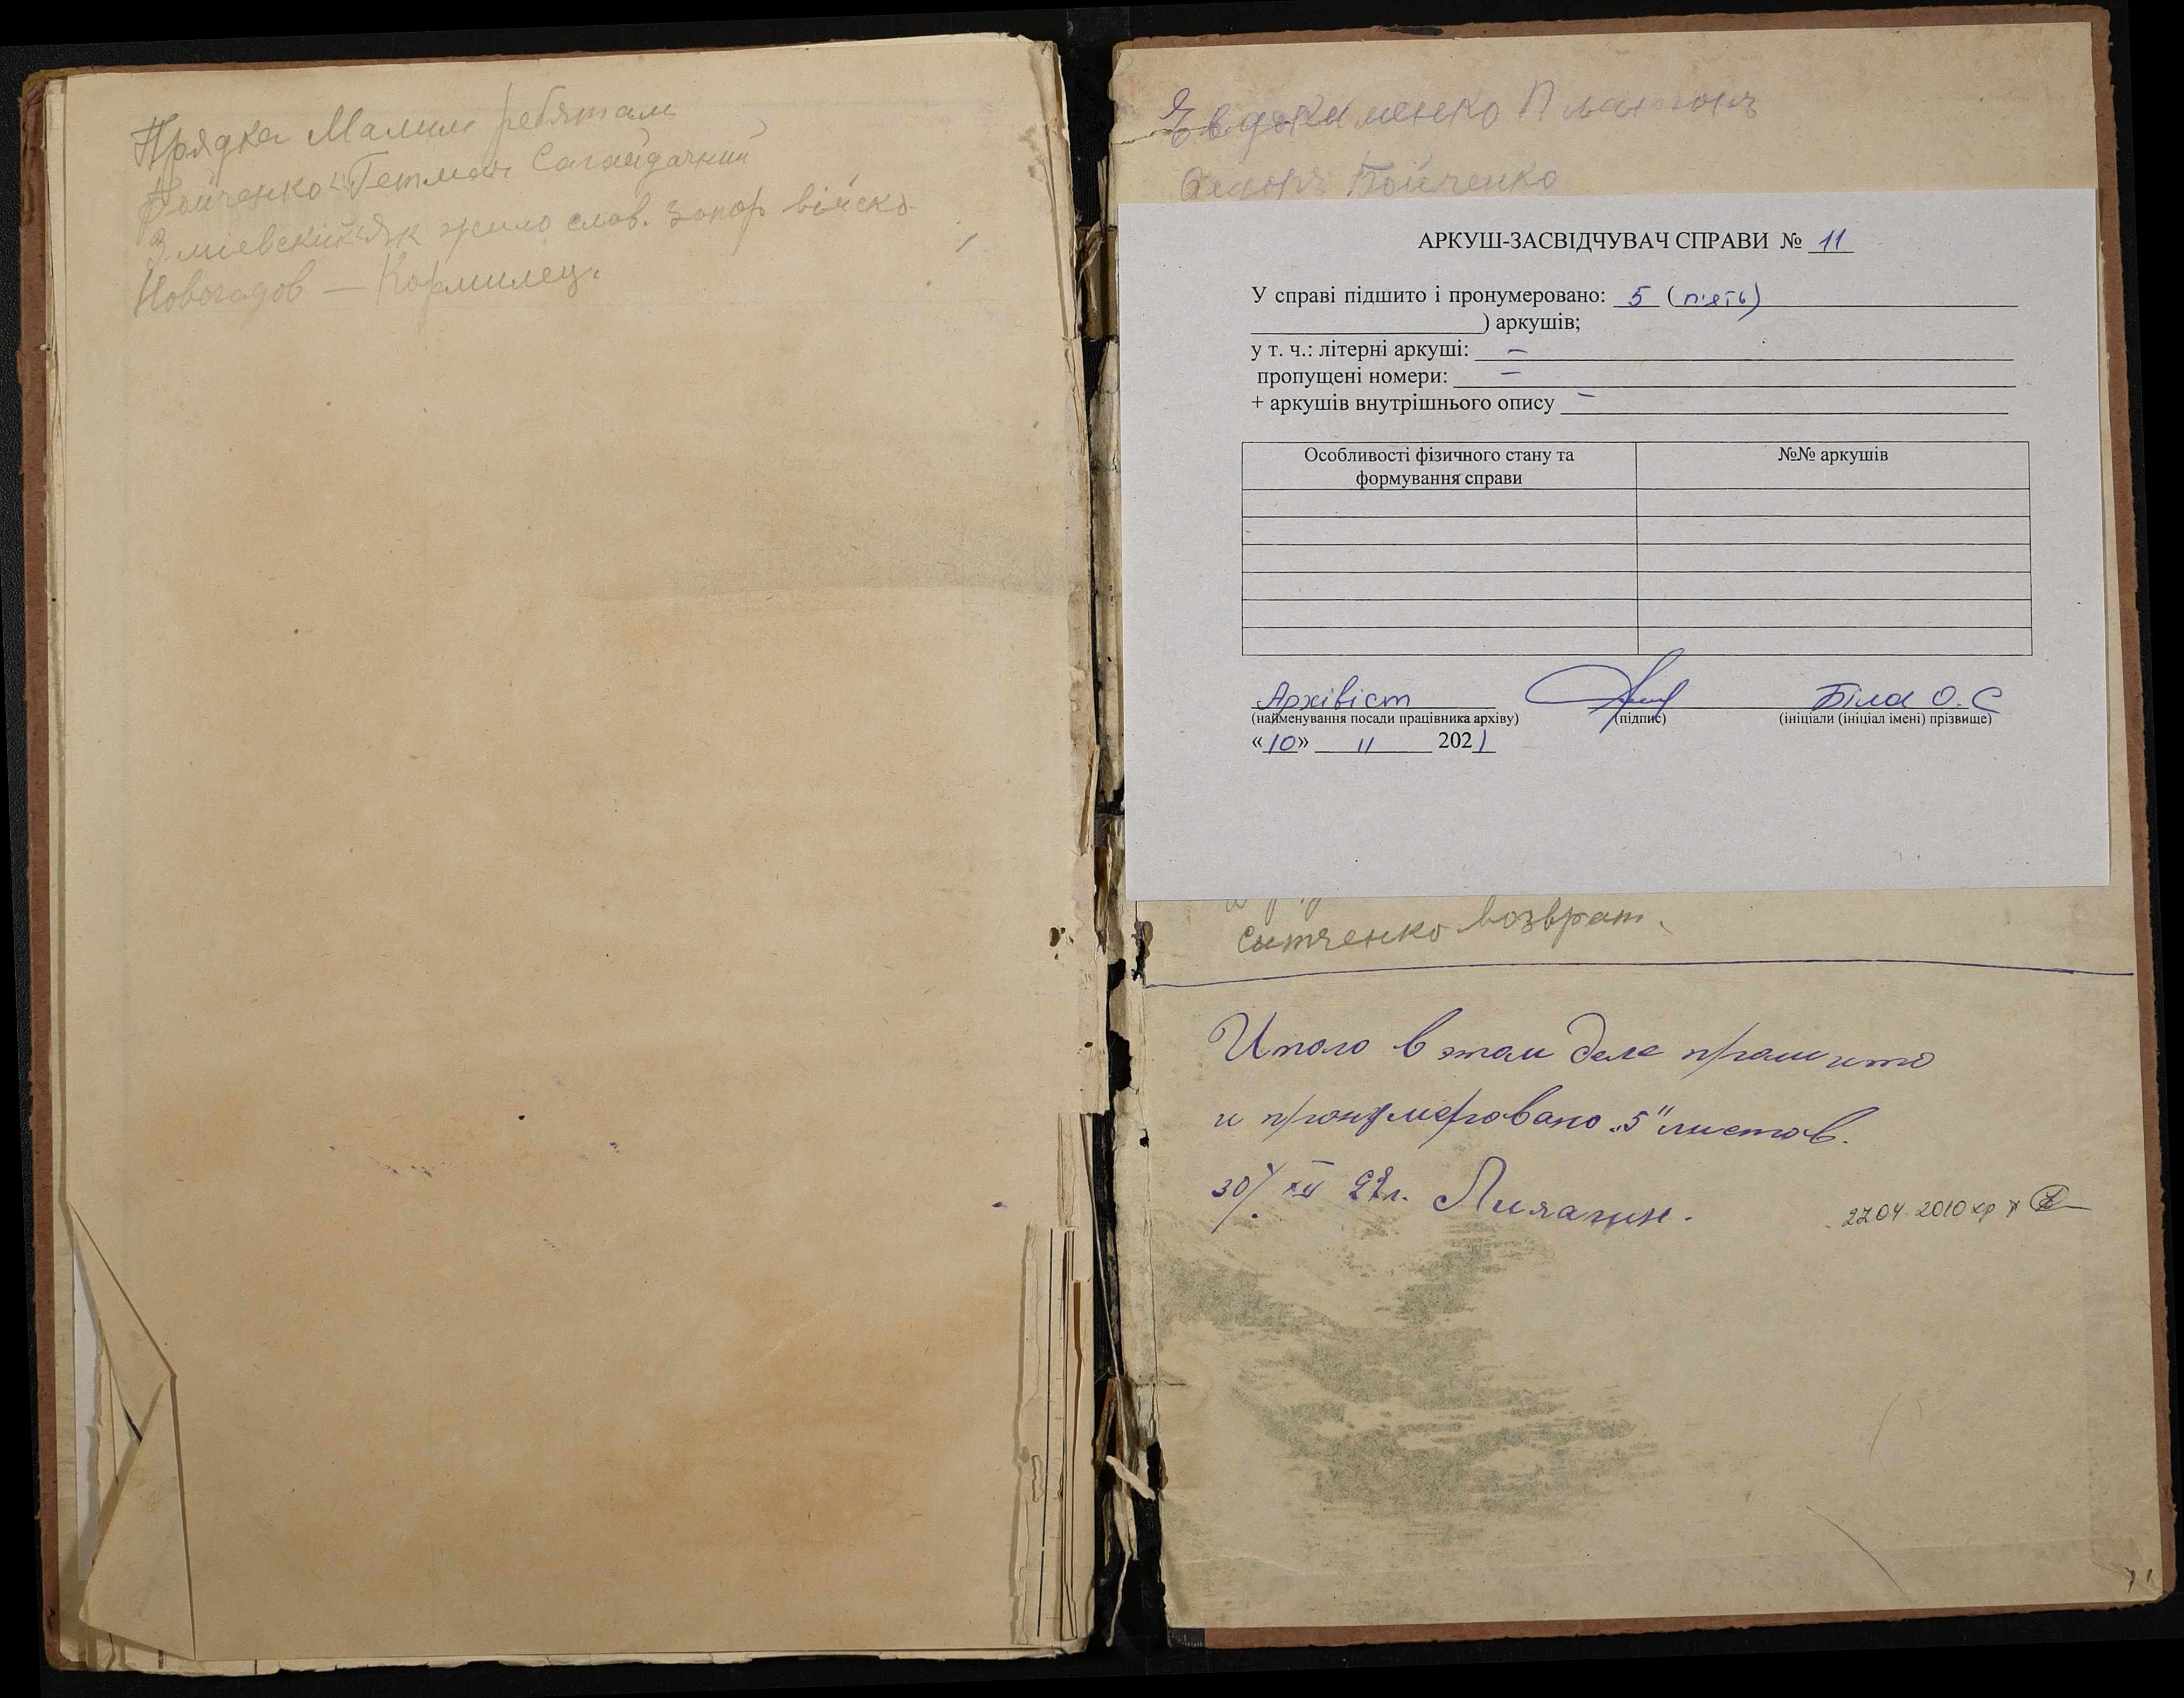 Прядка Малим ребятам
Бойченко "Гетман Сагайдачний
Змиевский "Як жило слав. Запор військо
Новогадов — Кормилец.
Евдокименко Платонъ
Бойченко
АРКУШ-ЗАСВІДЧУВАЧ СПРАВИ № 11
У справі підшито і пронумеровано: 5 (п'ять)
) аркушів;
у т. ч.: літерні аркуші: –
пропущені номери: –
+ аркушів внутрішнього опису –
Особливості фізичного стану та формування справи
№№ аркушів
Архівіст
Біла О. С
(найменування посади працівника архіву) (підпис) (ініціали (ініціал імені) прізвище)
«10» 11 2021
Сытченко возврат.
Итого в этом деле прошито
и пронумеровано „5" листов.
30/XII
27.04.2010